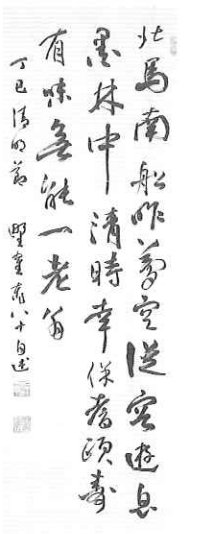 北馬南船昨夢空從容遊息
墨林中清時幸保耆頤壽
有味無能一老翁
丁巳清明節 八十自述